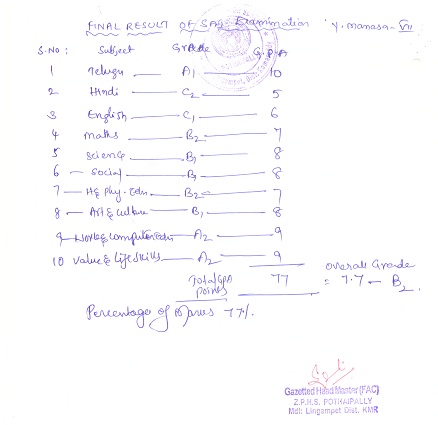 FINAL RESULT OF SA2 Examination Y. Manasa - VII
S.NO: Subject Grade G.P.A
1 Telugu — A1 — 10
2 Hindi — C2 — 5
3 English — C1 — 6
4 maths — B2 — 7
5 science — B1 — 8
6 — Social — B1 — 8
7 — H& phy. Edn — B2 — 7
8 — Art & culture — B1 — 8
9 — Work & computer Edn — A2 — 9
10 value & life skills — A2 — 9
Total GPA points 77 overall Grade = 7.7 — B2
Percentage of Marks 77%.
Gazetted Head Master (FAC)
Z.P.H.S. POTHAIPALLY
Mdl: Lingampet Dist. KMR